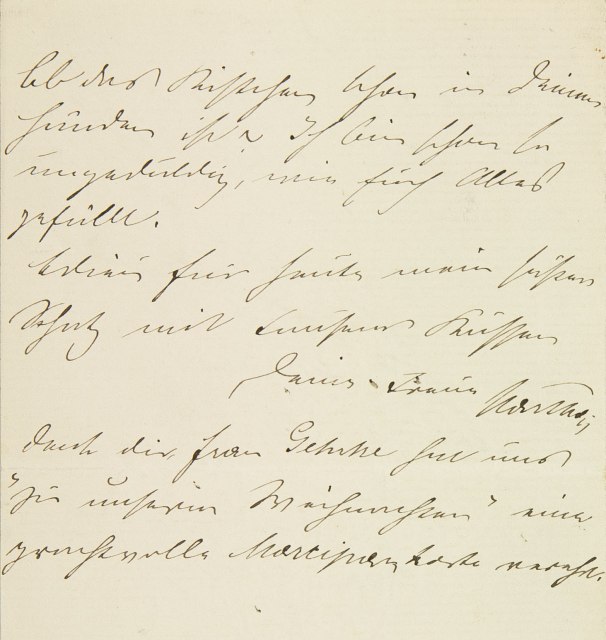 Ob das Kistchen schon in Deinen
Händen ist? Ich bin schon so
ungeduldig, wie Euch Alles
gefällt.
Adieu für heute mein süßer
Schatz mit tausend Küssen
Deine Treue Martha
denk dir, frau Gehrke hat uns
"zu unserem Weihnachten" eine
prachtvolle Marcipan torte verehrt.